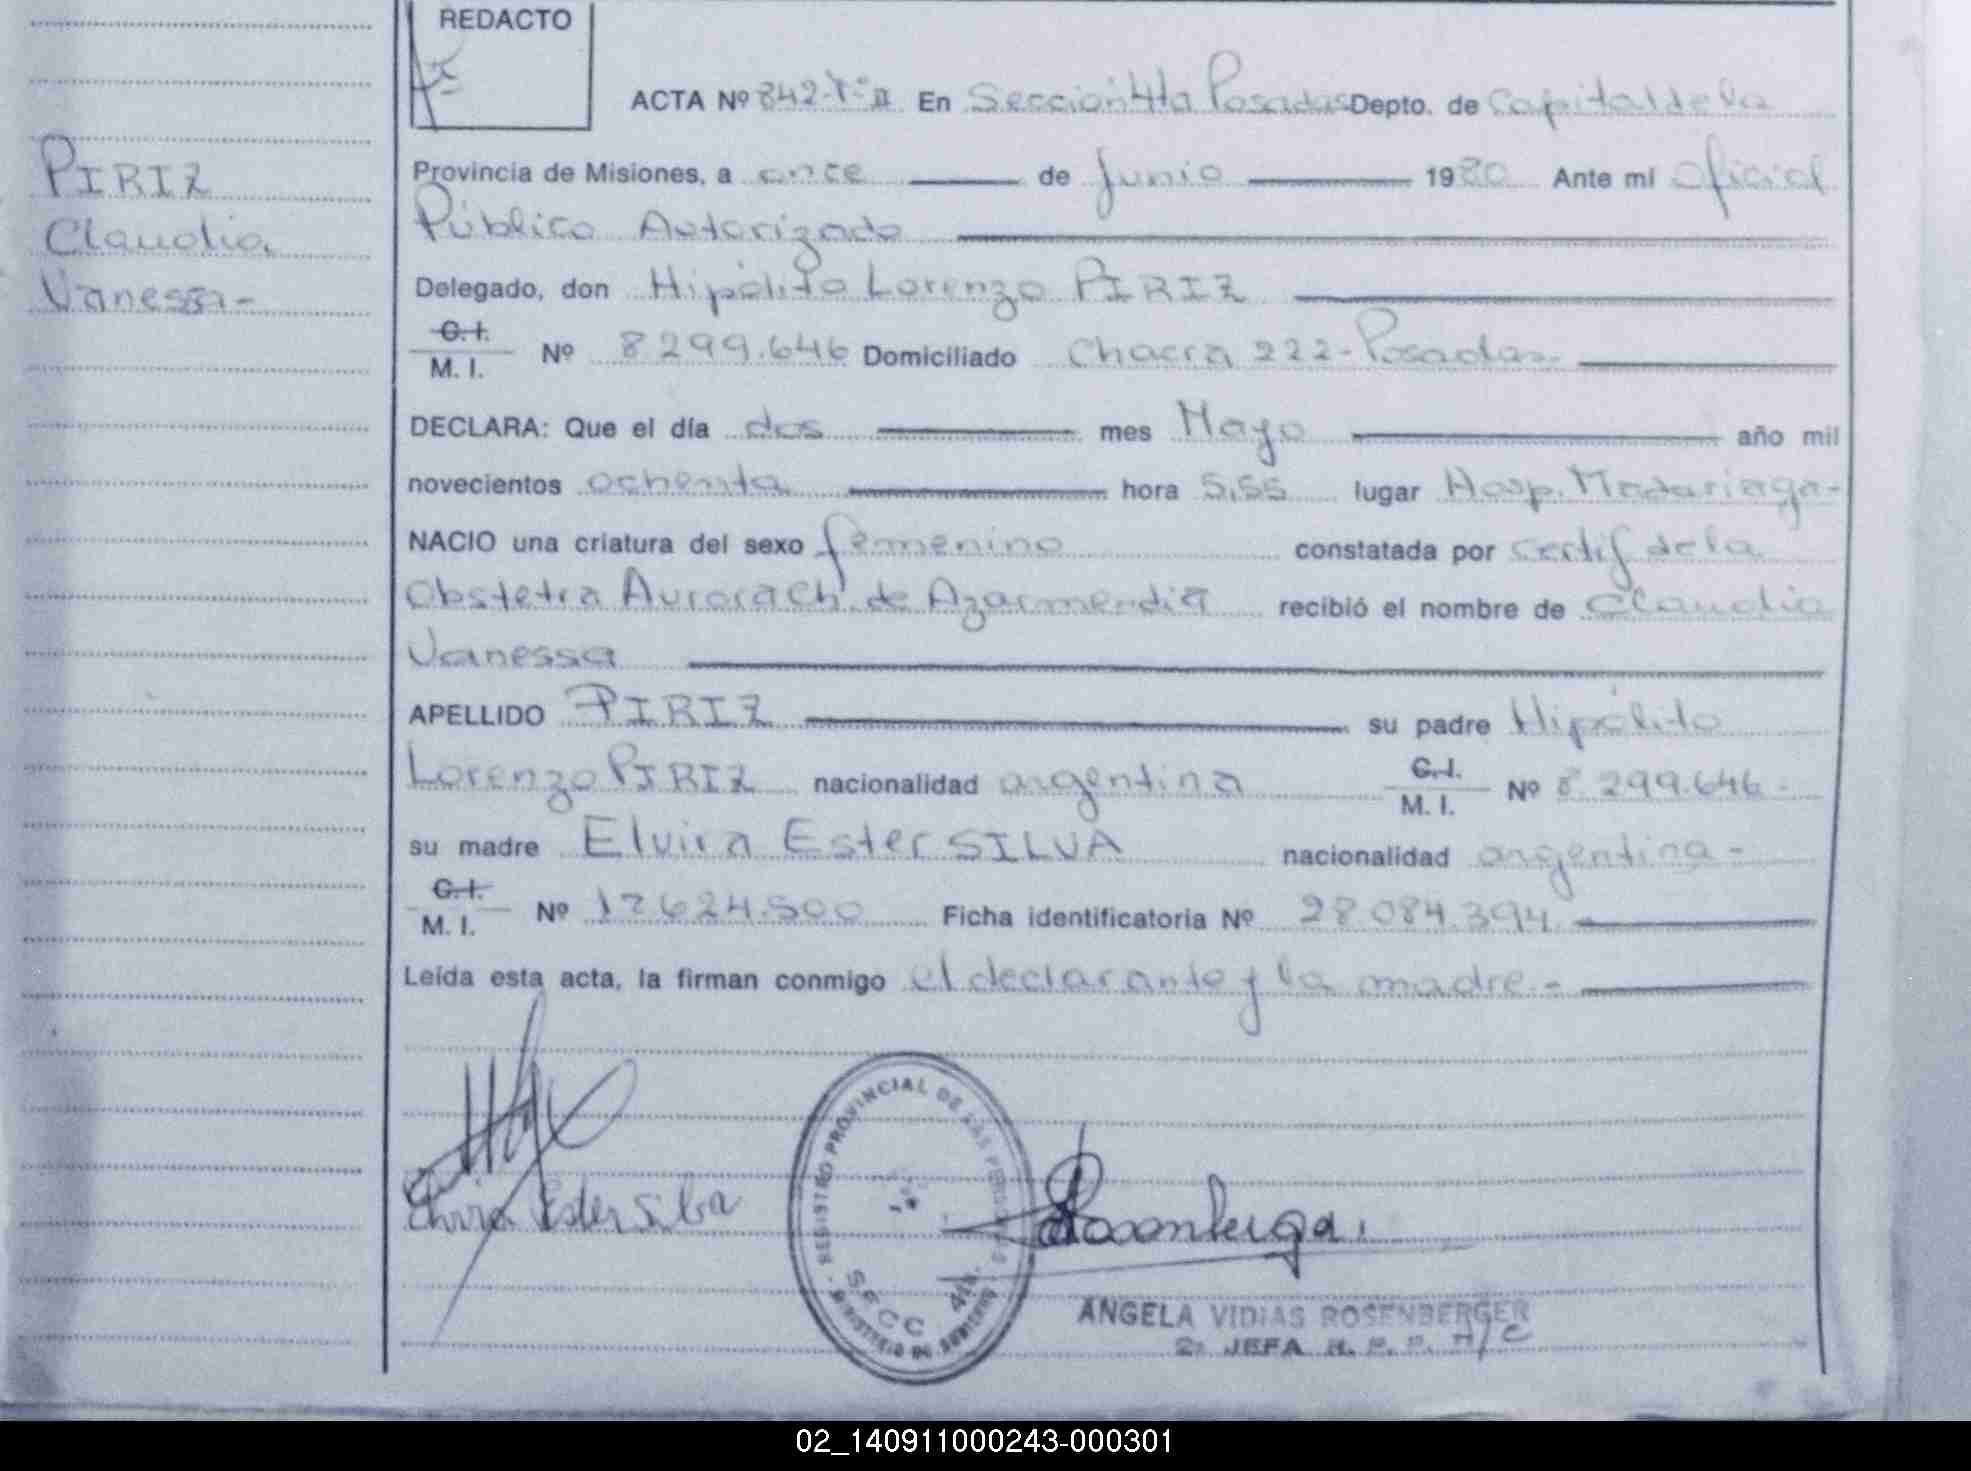 REDACTO
ACTA Nº 842-Tº II En Sección 4ta Posadas Depto. de Capital de la
PIRIZ
Claudia
Vanessa-
Provincia de Misiones, a once de Junio 1980 Ante mí Oficial
Público Autorizado
Delegado, don Hipólito Lorenzo PIRIZ
C. I.
M. I. Nº 8299.646 Domiciliado Chacra 222-Posadas-
DECLARA: Que el día dos mes Mayo año mil
novecientos ochenta hora 5,55 lugar Hosp. Madariaga-
NACIO una criatura del sexo femenino constatada por certif de la
Obstetra Aurora Ch. de Azarmendia recibió el nombre de Claudia
Vanessa
APELLIDO PIRIZ su padre Hipólito
Lorenzo PIRIZ nacionalidad argentina C. I.
M. I. Nº 8.299.646-
su madre Elvira Ester SILVA nacionalidad argentina-
C. I.
M. I. Nº 12624.500 Ficha identificatoria Nº 28.084.394
Leída esta acta, la firman conmigo el declarante y la madre.-
Elvira Ester Silva
REGISTRO PROVINCIAL DE LAS PERSONAS
SECC 4ta.
MINISTERIO DE GOBIERNO
ANGELA VIDIAS ROSENBERGER
2ª JEFA R. P. P. A/C
02_140911000243-000301